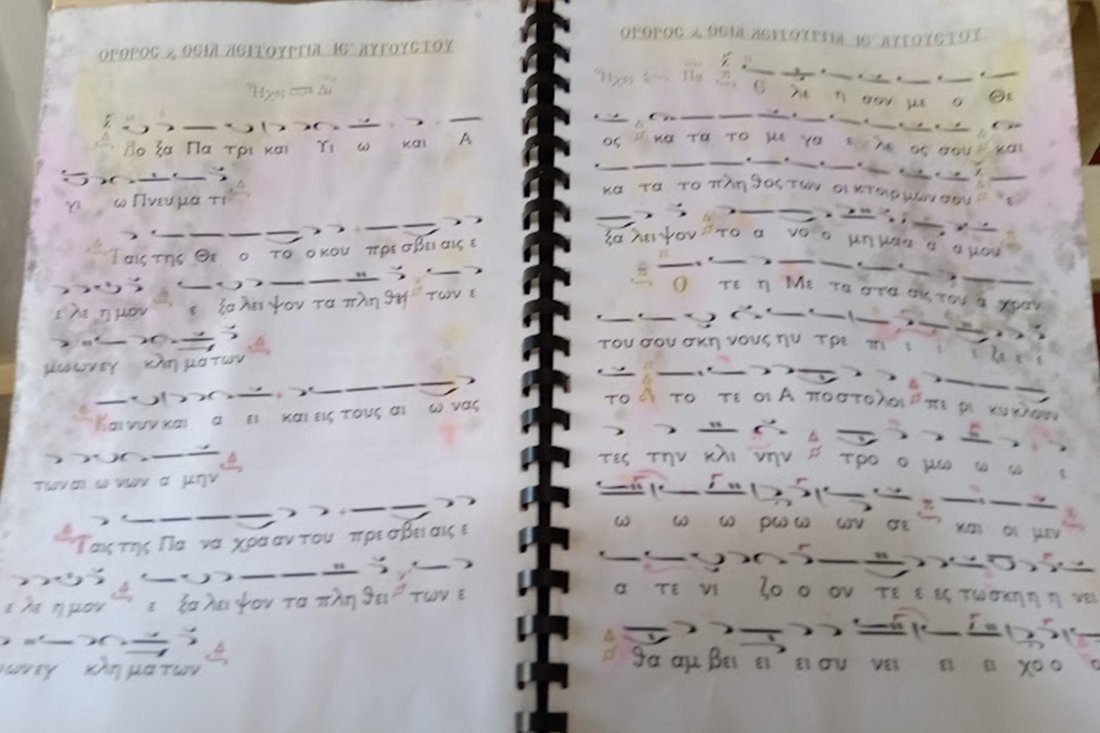 ΟΡΘΡΟΣ & ΘΕΙΑ ΛΕΙΤΟΥΡΓΙΑ ΙΕ' ΑΥΓΟΥΣΤΟΥ
Ἦχος Δι
Δο ξα Πα τρι και Υι ω και Α
γι ω Πνευ μα τι
Ταις της Θε ο το ο κου πρε σβει αις ε
ε λε η μον ε ξα λει ψον τα πλη θη των ε
μω ων εγ κλη μα των
Και νυν και α ει και εις τους αι ω νας
των αι ω νων α μην
Ταις της Πα να χρα αν του πρε σβει αις ε
ε λε η μον ε ξα λει ψον τα πλη θει των ε
ων εγ κλη μα των
ΟΡΘΡΟΣ & ΘΕΙΑ ΛΕΙΤΟΥΡΓΙΑ ΙΕ' ΑΥΓΟΥΣΤΟΥ
Ἦχος Πα
Ε λε η σον με ο Θε
ος κα τα το με γα ε λε ος σου και
κα τα το πλη θος των οι κτιρ μων σου ε
ξα λει ψον το α νο ο μη μα α α μου
Ο τε η Με τα στα σις του α χραν
του σου σκη νους ηυ τρε πι ι ι ι ζε ε ε
το το τε οι Α πο στο λοι πε ρι κυ κλουν
τες την κλι νην τρο ο μω ω ω ε
ω ω ω ρω ω ων σε και οι μεν
α τε νι ζο ο ον τε ε ες τω σκη η η νει
θα αμ βει ει ει συ νει ει ει χο ο